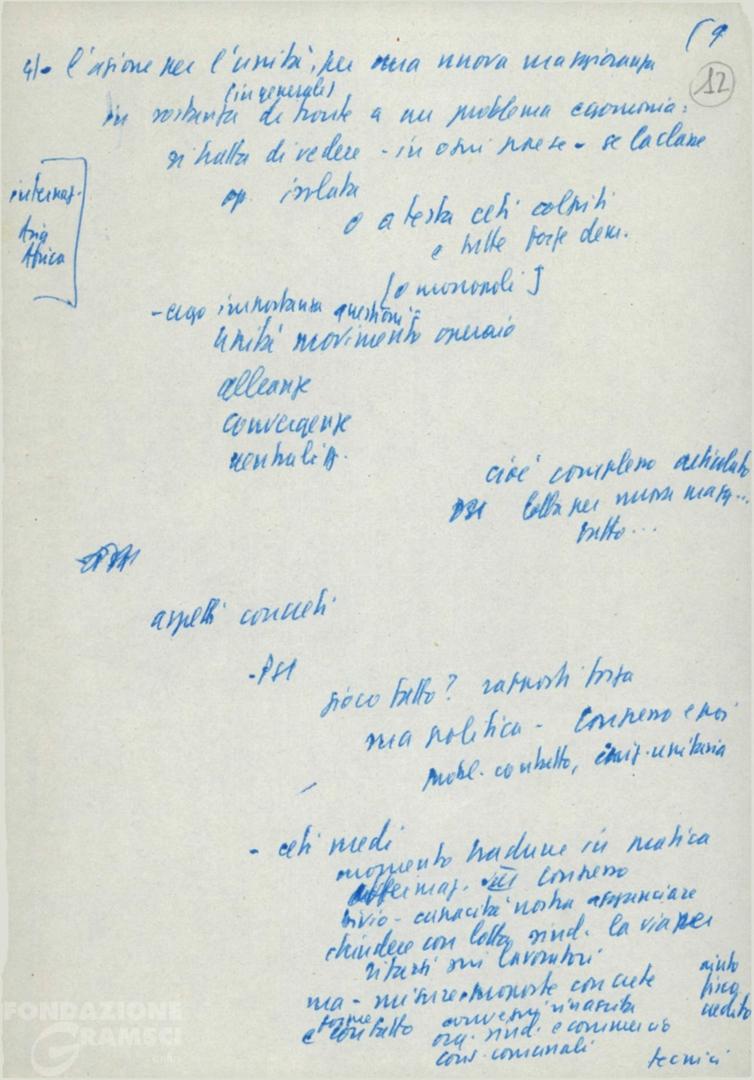 9
12
4)- l'azione per l'unità, per una nuova maggioranza
(in generale)
in sostanza di fronte a un problema egemonia:
si tratta di vedere - in ogni paese - se la classe
op. isolata
o a testa ceti colpiti
e tutte forze dem.
internaz.
Asia
Africa
[o monopoli]
- ergo importanza questioni
Unità movimento operaio
alleanze
convergenze
neutralizz.
cioè complesso articolato
lotta per nuova magg...
tutto...
aspetti concreti
- PSI
gioco fatto? rapporti forza
ma politica - Congresso e poi
probl. contatto, iniz. unitaria
- ceti medi
momento tradurre in pratica
affermaz. VIII congresso
bivio - capacità nostra agganciare
chiudere con lotta sind. la via per
rifarsi sui lavoratori
ma - misure e proposte concrete
aiuto
fisco
credito
forme
e contatto convegni rinascita
org. sind. e commercio
cons. comunali
tecnici
FONDAZIONE
GRAMSCI